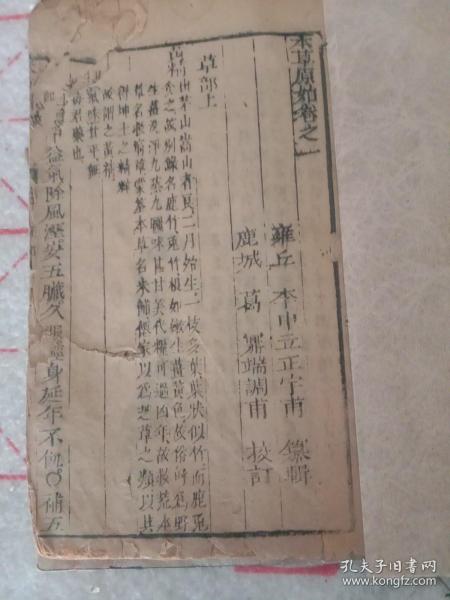 本草原始卷之一
雍丘 李中立正宇甫 纂輯
鹿城 葛鼐端調甫 校訂
草部上
黃精 山茅山嵩山者良二月始生一枝多葉葉狀似竹而鹿兎
食之故别錄名鹿竹兎竹根如嫩生薑黃色故俗呼爲野
生薑洗淨九蒸九曬味甚甘美代糧可過凶年故救荒本
草名救窮草蒙荃本草名米餔僊家以爲芝草之類以其
得坤土之精粹
故謂之黃精
氣味甘平無
毒
益氣除風濕安五臟久服輕身延年不飢○補五
孔夫子旧书网
www.kongfz.com